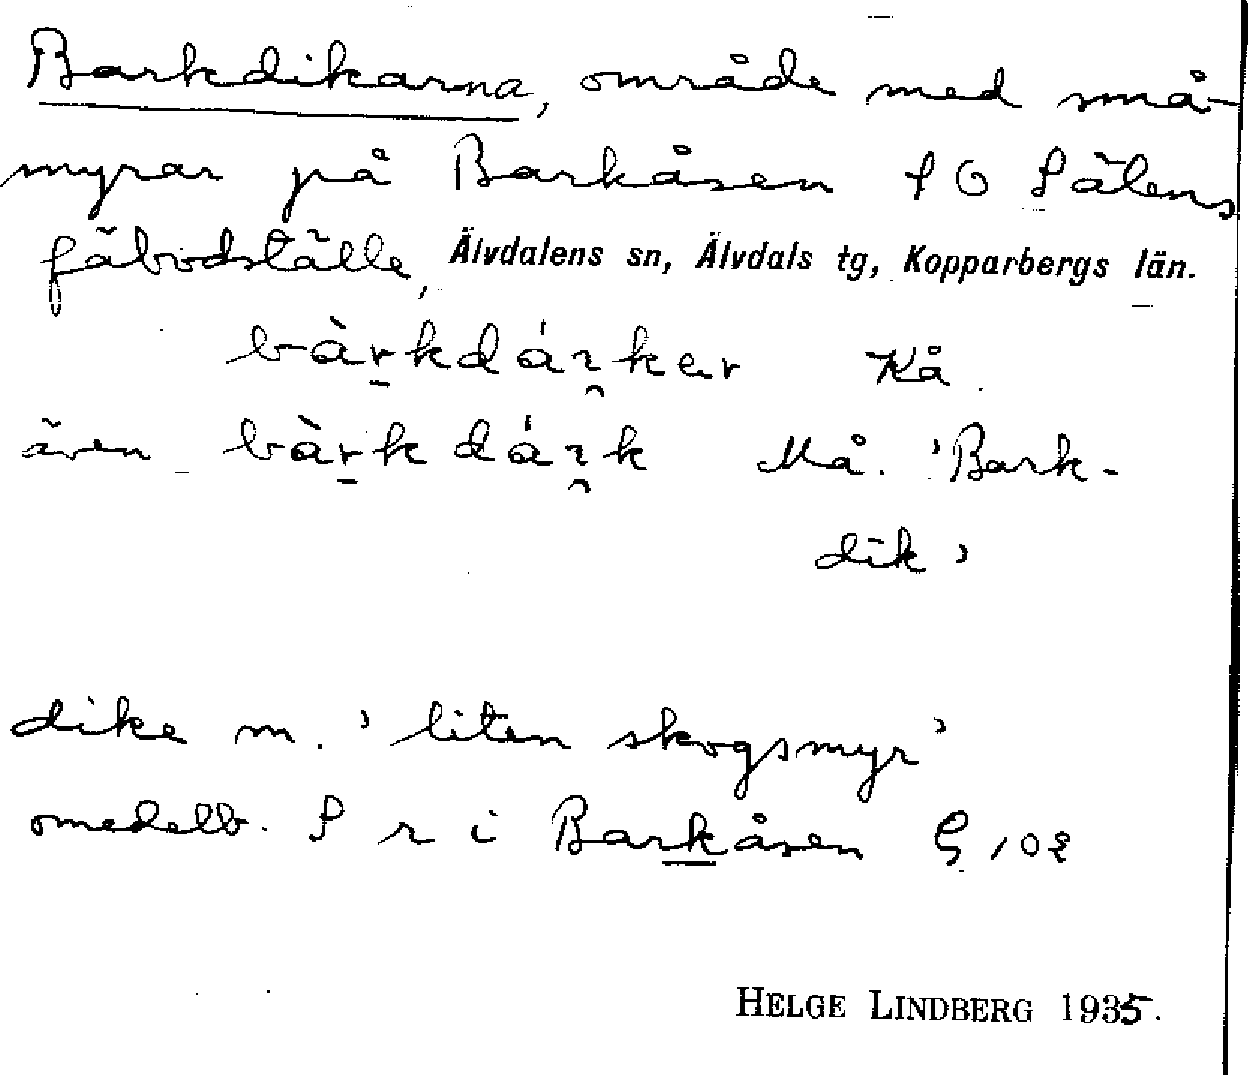 Barkdikarna, område med små-
myrar på Barkåsen SO Sälens
fäbodställe, Älvdalens sn, Älvdals tg, Kopparbergs län.
bàrkdáıker Kå.
även bàrkdáık Må. 'Bark-
dik'
dike m. 'liten skogsmyr'
omedelb. S r i Barkåsen G 102
HELGE LINDBERG 1935.